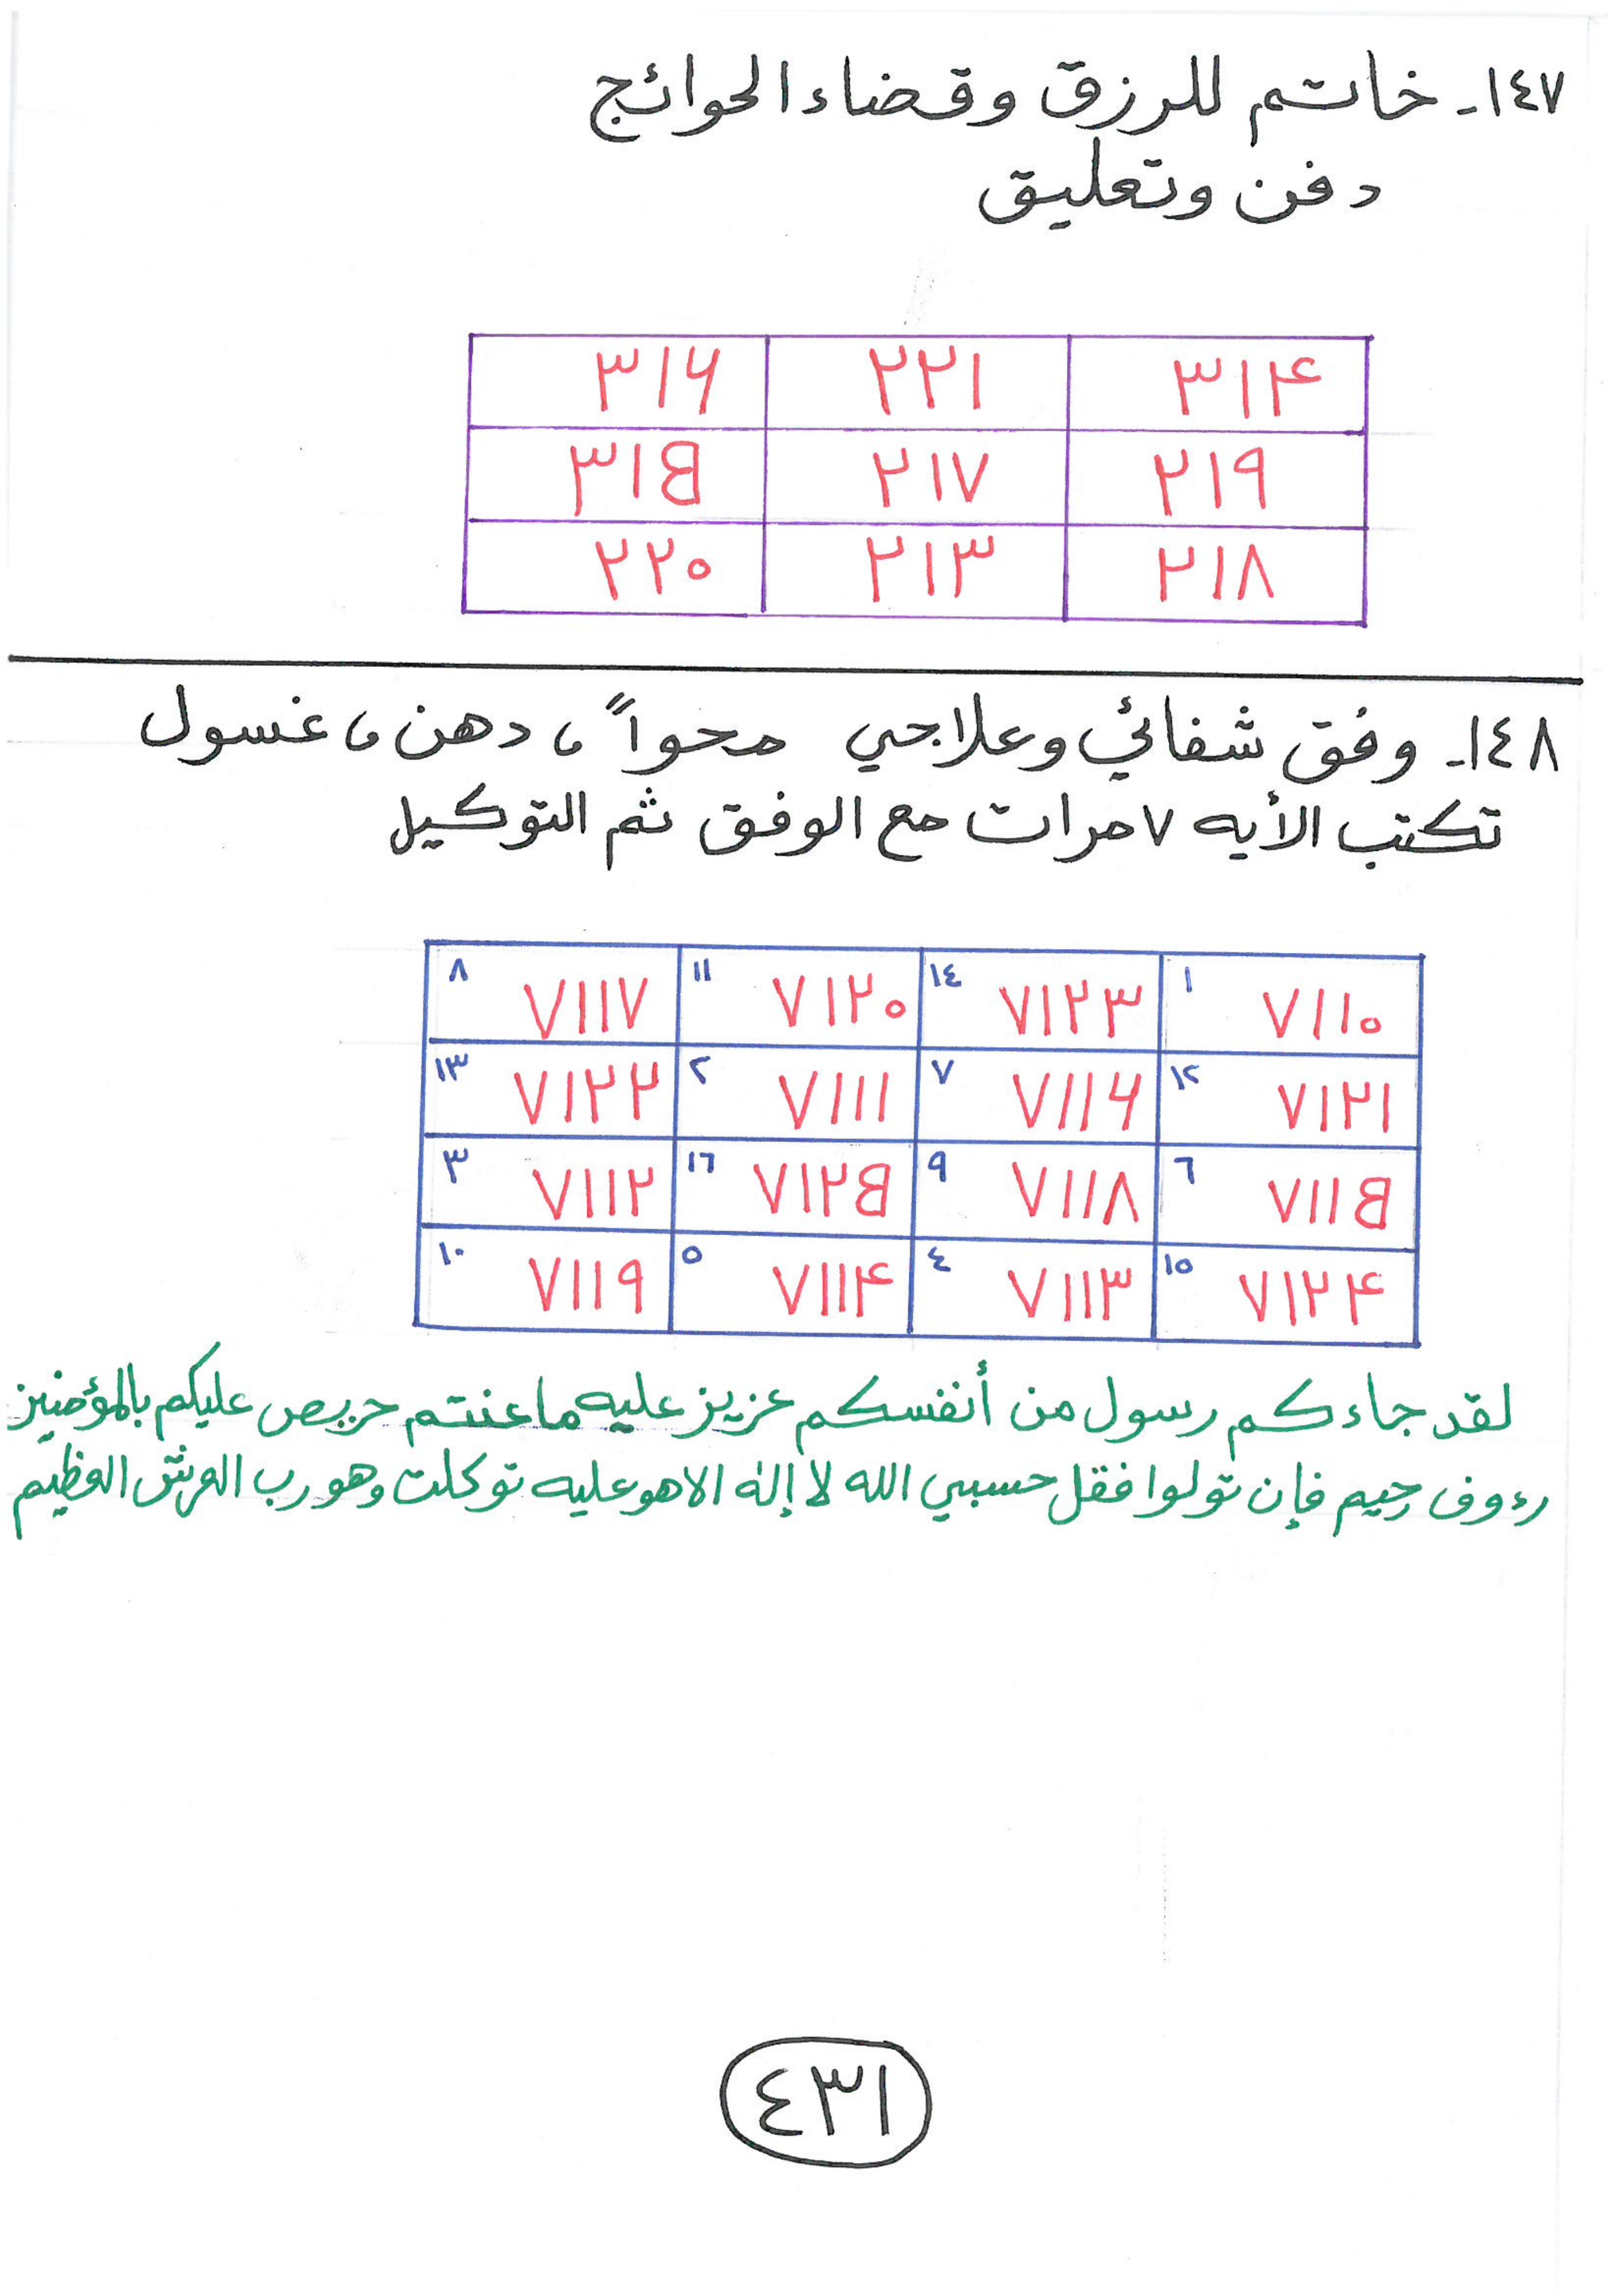 ١٤٧- خاتم للرزق وقضاء الحوائج
دفن وتعليق
٣١٤ ٢٢١ ٣١٦
٢١٩ ٢١٧ ٣١٥
٢١٨ ٢١٣ ٢٢٠
١٤٨- وفق شفائي وعلاجي محواً، دهن، غسول
تكتب الأيه ٧ مرات مع الوفق ثم التوكيل
٧١١٠ ١ ٧١٢٣ ١٤ ٧١٢٠ ١١ ٧١١٧ ٨
٧١٢١ ١٢ ٧١١٦ ٧ ٧١١١ ٢ ٧١٢٢ ١٣
٧١١٥ ٦ ٧١١٨ ٩ ٧١٢٥ ١٦ ٧١١٢ ٣
٧١٢٤ ١٥ ٧١١٣ ٤ ٧١١٤ ٥ ٧١١٩ ١٠
لقد جاءكم رسول من أنفسكم عزيز عليه ماعنتم حريص عليكم بالمؤمنين
رءوف رحيم فإن تولوا فقل حسبي الله لا إله الاهو عليه توكلت وهو رب العرش العظيم
٤٣١